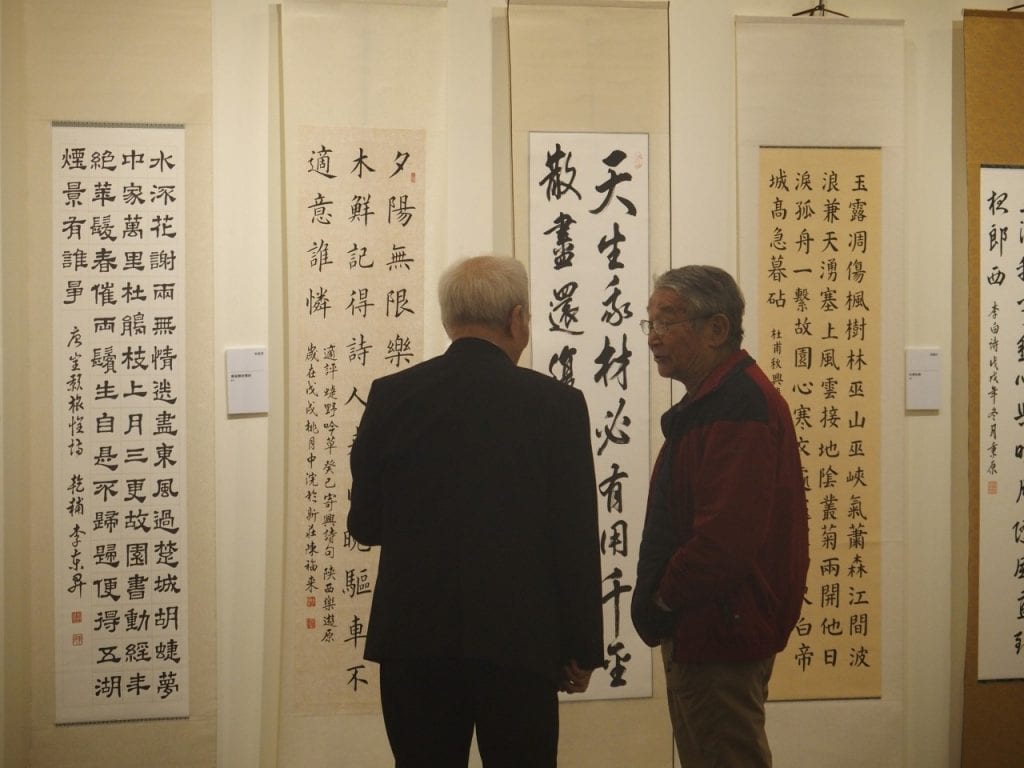 水流花謝兩無情送盡東風過楚城胡蜨夢
中家萬里杜鵑枝上月三更故園書動經年
絕華髮春催兩鬢生自是不歸歸便得五湖
煙景有誰爭
李东昇
夕陽無限樂
木鮮記得詩人 晚驅車不
適意誰憐
野吟草癸已寄興詩句陝西樂遊原
歲在戊戌桃月中浣於新莊陳福来
天生我材必有用千金
散盡還復
玉露凋傷楓樹林巫山巫峽氣蕭森江間波
浪兼天湧塞上風雲接地陰叢菊兩開他日
淚孤舟一繫故園心寒衣 白帝
城髙急暮砧
杜甫秋興
郎西
李白诗戊戌年冬月秉原